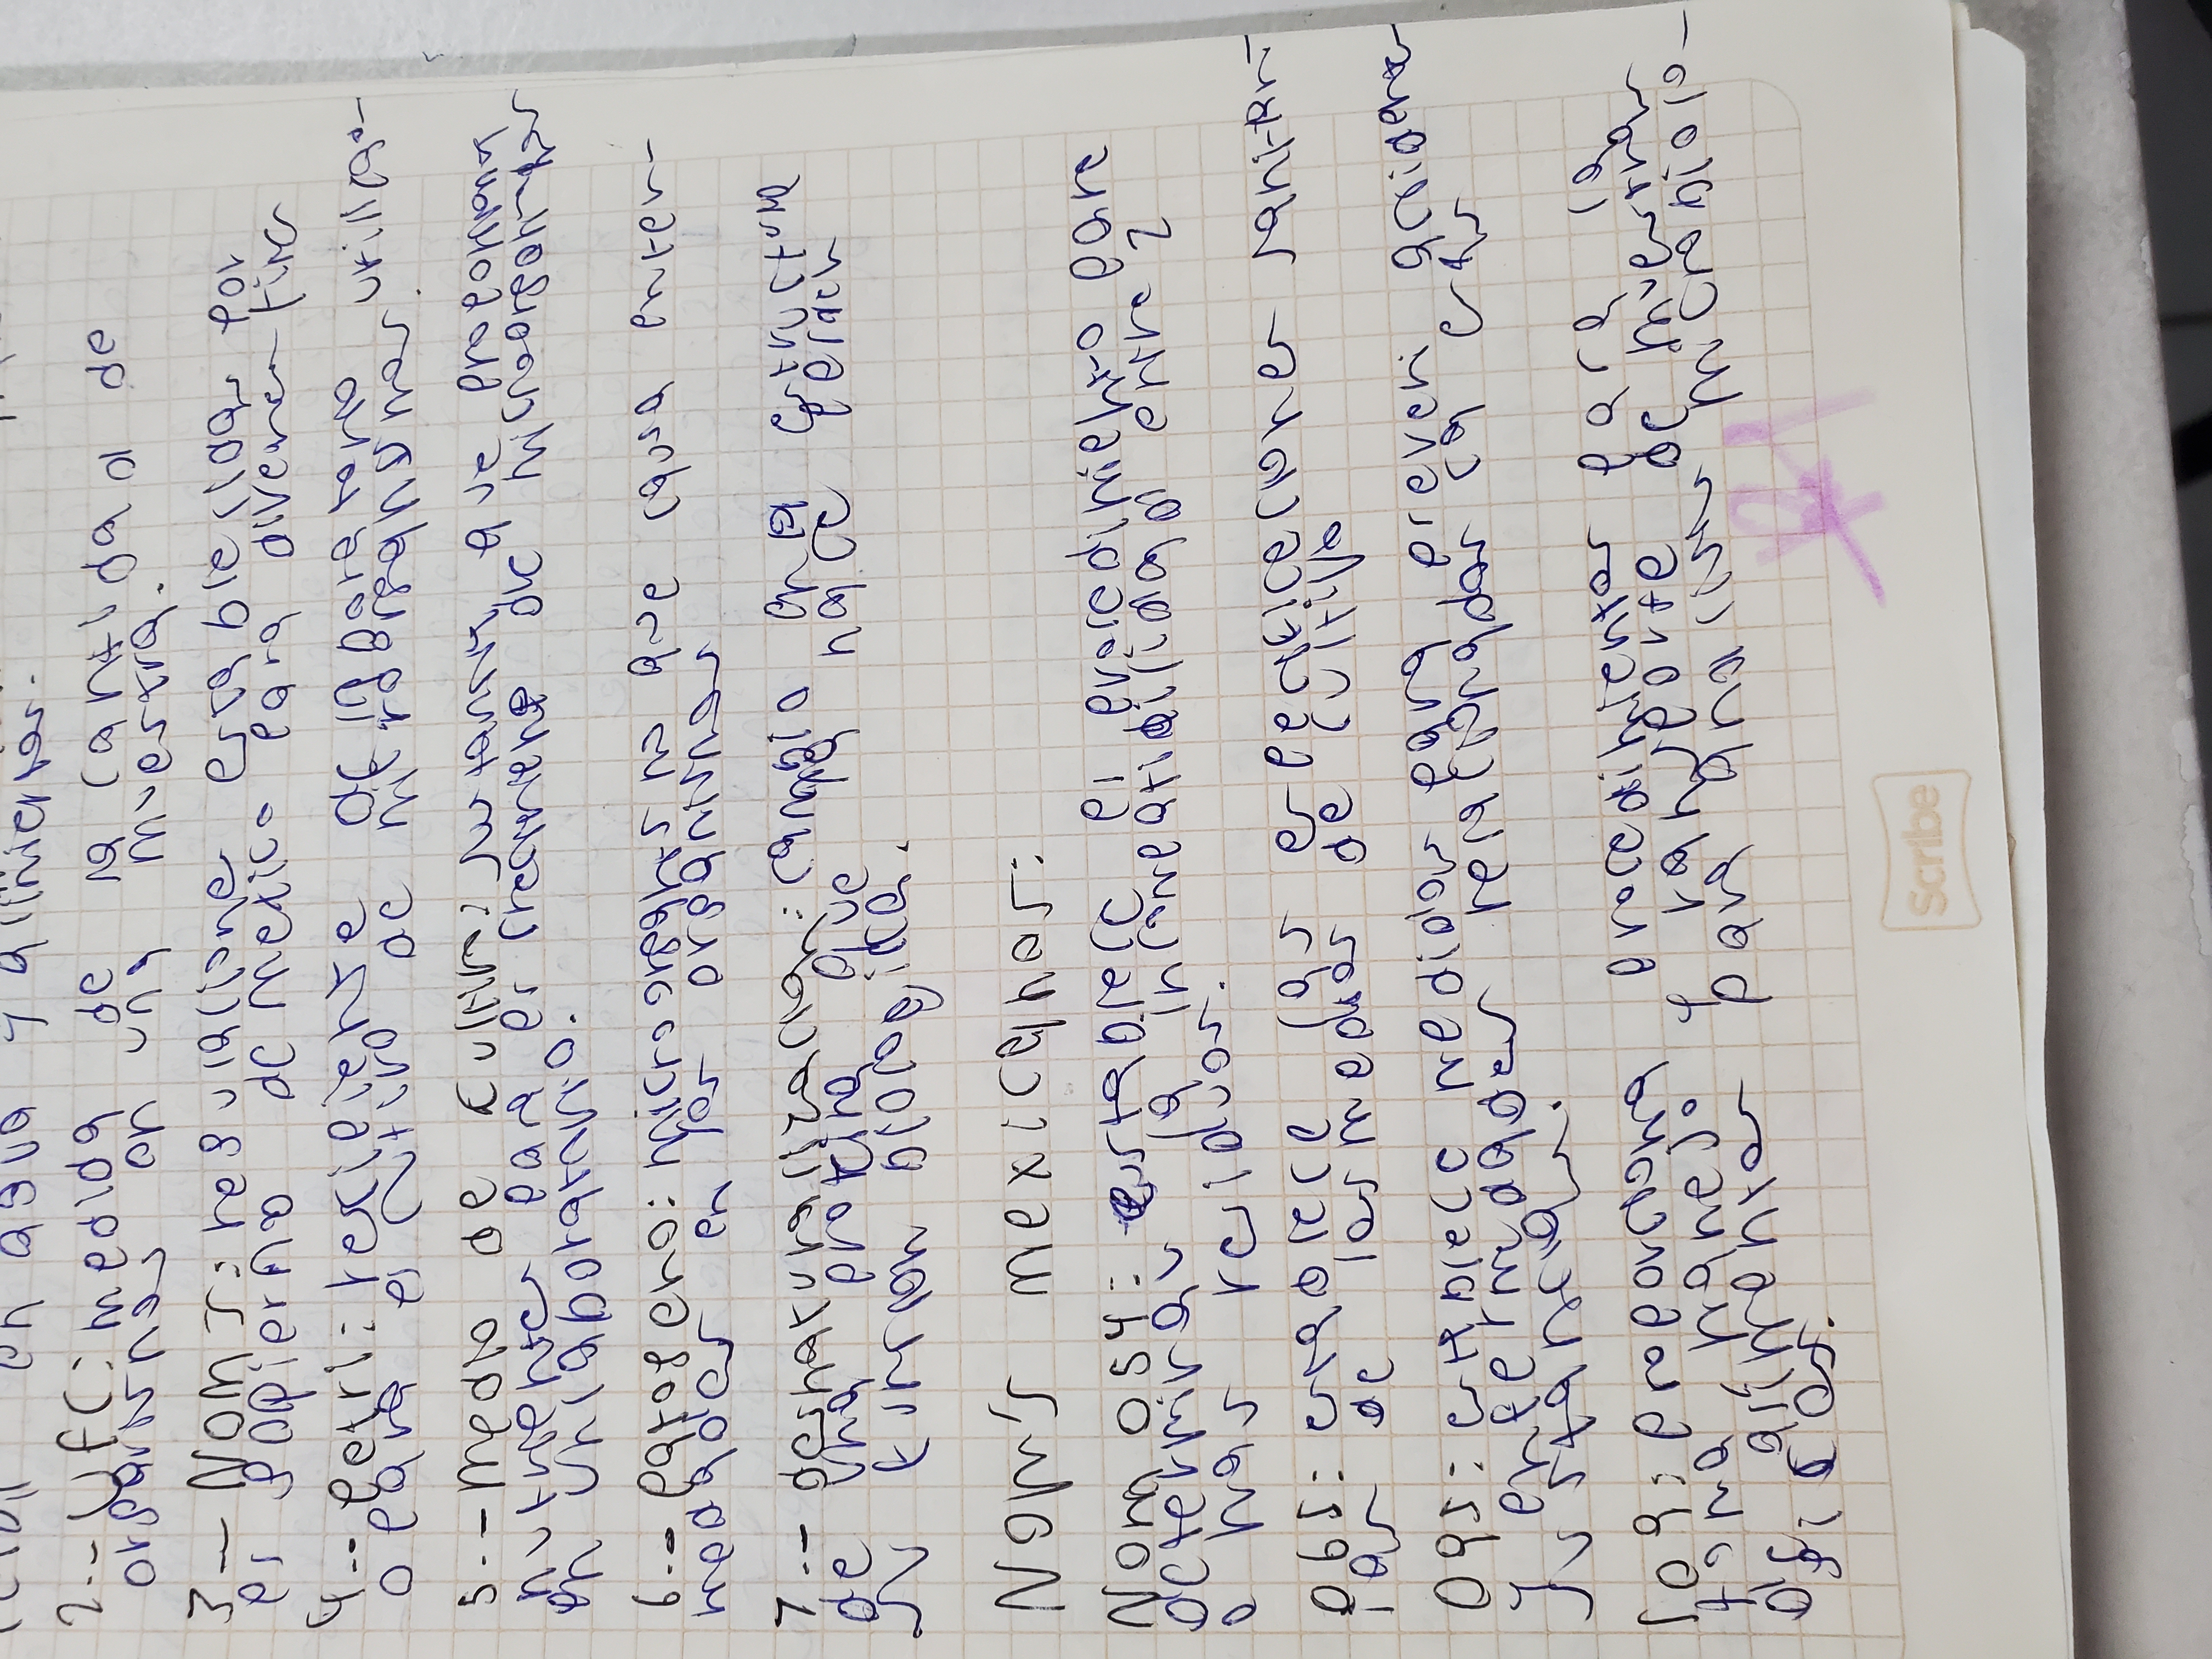 en agua y alimentos.
2.- UFC: medida de la cantidad de
organismos en una muestra.
3- NOMS: regulaciones establecidas por
el gobierno de mexico para diversos fines
4.- petri: recipiente de laboratorio utiliza-
do para el cultivo de microorganismos.
5.- medio de cultivo: sustancia que proporciona
nutrientes para el crecimiento de microorganismos
en un laboratorio.
6.- patogeno: microorganismo que causa enfer-
medades en los organismos
7.- desnaturalización: cambio en la estructura
de una proteina que hace perder
su función biologica.
NOMS mexicanas:
Nom 054: establece el procedimiento para
determinar la incompatibilidad entre
dos residuos.
087: establece las especificaciones sanitari-
as de los medios de cultivo
045: establece medidas para prevenir accidentes
y enfermedades relacionadas con estas
sustancias.
109: proporciona procedimientos para la
toma, manejo y transporte de muestras
de alimentos para su análisis microbioló-
gicos.
Scribe